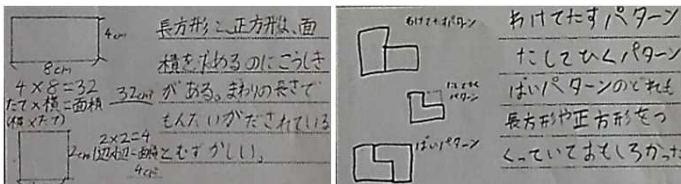 4cm
8cm
4×8=32
32cm²
たて×横=面積
(横×たて)
2cm
2×2=4
1辺×1辺=面積
4cm²
長方形と正方形は、面
積を求めるのにこうしき
がある。まわりの長さで
もんだいがだされている
とむずかしい。
わけてたすパターン
たしてひく
パターン
ばいパターン
わけてたすパターン
たしてひくパターン
ばいパターンのどれも
長方形や正方形をつ
くっていておもしろかった